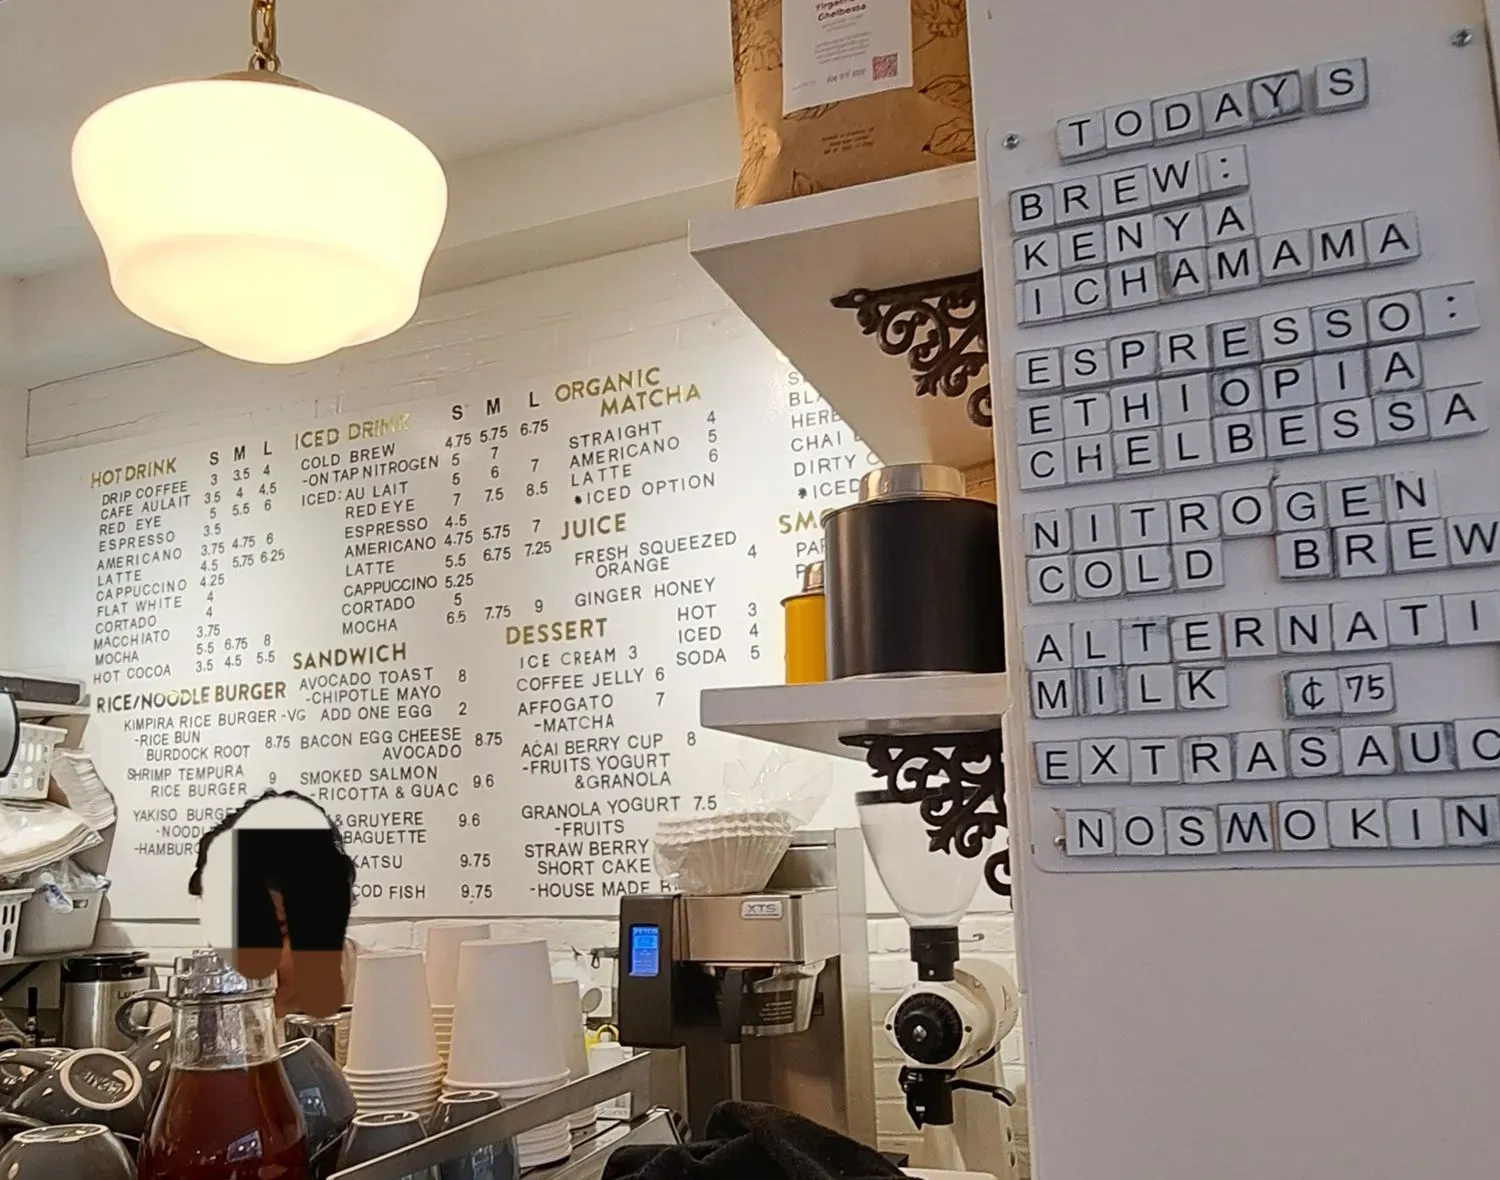 Chelbessa
TODAY S
BREW:
KENYA
ICHAMAMA
ESPRESSO:
ETHIOPIA
CHELBESSA
NITROGEN
COLD BREW
ALTERNATI
MILK ¢75
EXTRASAUC
NOSMOKIN
HOT DRINK S M L
DRIP COFFEE 3 3.5 4
CAFE AU LAIT 3.5 4 4.5
RED EYE 5 5.5 6
ESPRESSO 3.5
AMERICANO 3.75 4.75 6
LATTE 4.5 5.75 6.25
CAPPUCCINO 4.25
FLAT WHITE 4
CORTADO 4
MACCHIATO 3.75
MOCHA 5.5 6.75 8
HOT COCOA 3.5 4.5 5.5
RICE/NOODLE BURGER
KIMPIRA RICE BURGER -VG
-RICE BUN
BURDOCK ROOT 8.75
SHRIMP TEMPURA 9
RICE BURGER
YAKISO BURGE
-NOODL
-HAMBURG
ICED DRINK S M L
COLD BREW 4.75 5.75 6.75
-ON TAP NITROGEN 5 7
ICED: AU LAIT 5 6 7
RED EYE 7 7.5 8.5
ESPRESSO 4.5
AMERICANO 4.75 5.75 7
LATTE 5.5 6.75 7.25
CAPPUCCINO 5.25
CORTADO 5
MOCHA 6.5 7.75 9
SANDWICH
AVOCADO TOAST 8
-CHIPOTLE MAYO
ADD ONE EGG 2
BACON EGG CHEESE 8.75
AVOCADO
SMOKED SALMON
-RICOTTA & GUAC 9.6
&GRUYERE 9.6
BAGUETTE
KATSU 9.75
COD FISH 9.75
ORGANIC
MATCHA
STRAIGHT 4
AMERICANO 5
LATTE 6
*ICED OPTION
JUICE
FRESH SQUEEZED 4
ORANGE
GINGER HONEY
HOT 3
ICED 4
SODA 5
DESSERT
ICE CREAM 3
COFFEE JELLY 6
AFFOGATO 7
-MATCHA
AÇAI BERRY CUP 8
-FRUITS YOGURT
&GRANOLA
GRANOLA YOGURT 7.5
-FRUITS
STRAW BERRY
SHORT CAKE
-HOUSE MADE
BLA
HERB
CHAI
DIRTY C
*ICED
SMO
PAR
XTS